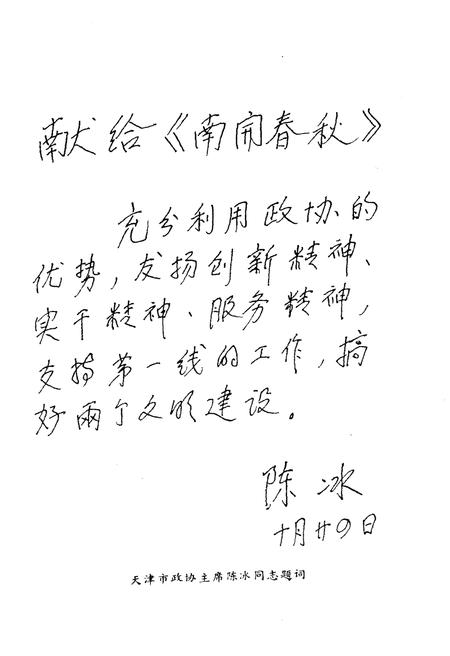 献给《南开春秋》
充分利用政协的
优势，发扬创新精神、
实干精神、服务精神，
支持第一线的工作，搞
好兩个文明建设。
陈冰
十月廿四日
天津市政协主席陈冰同志题词